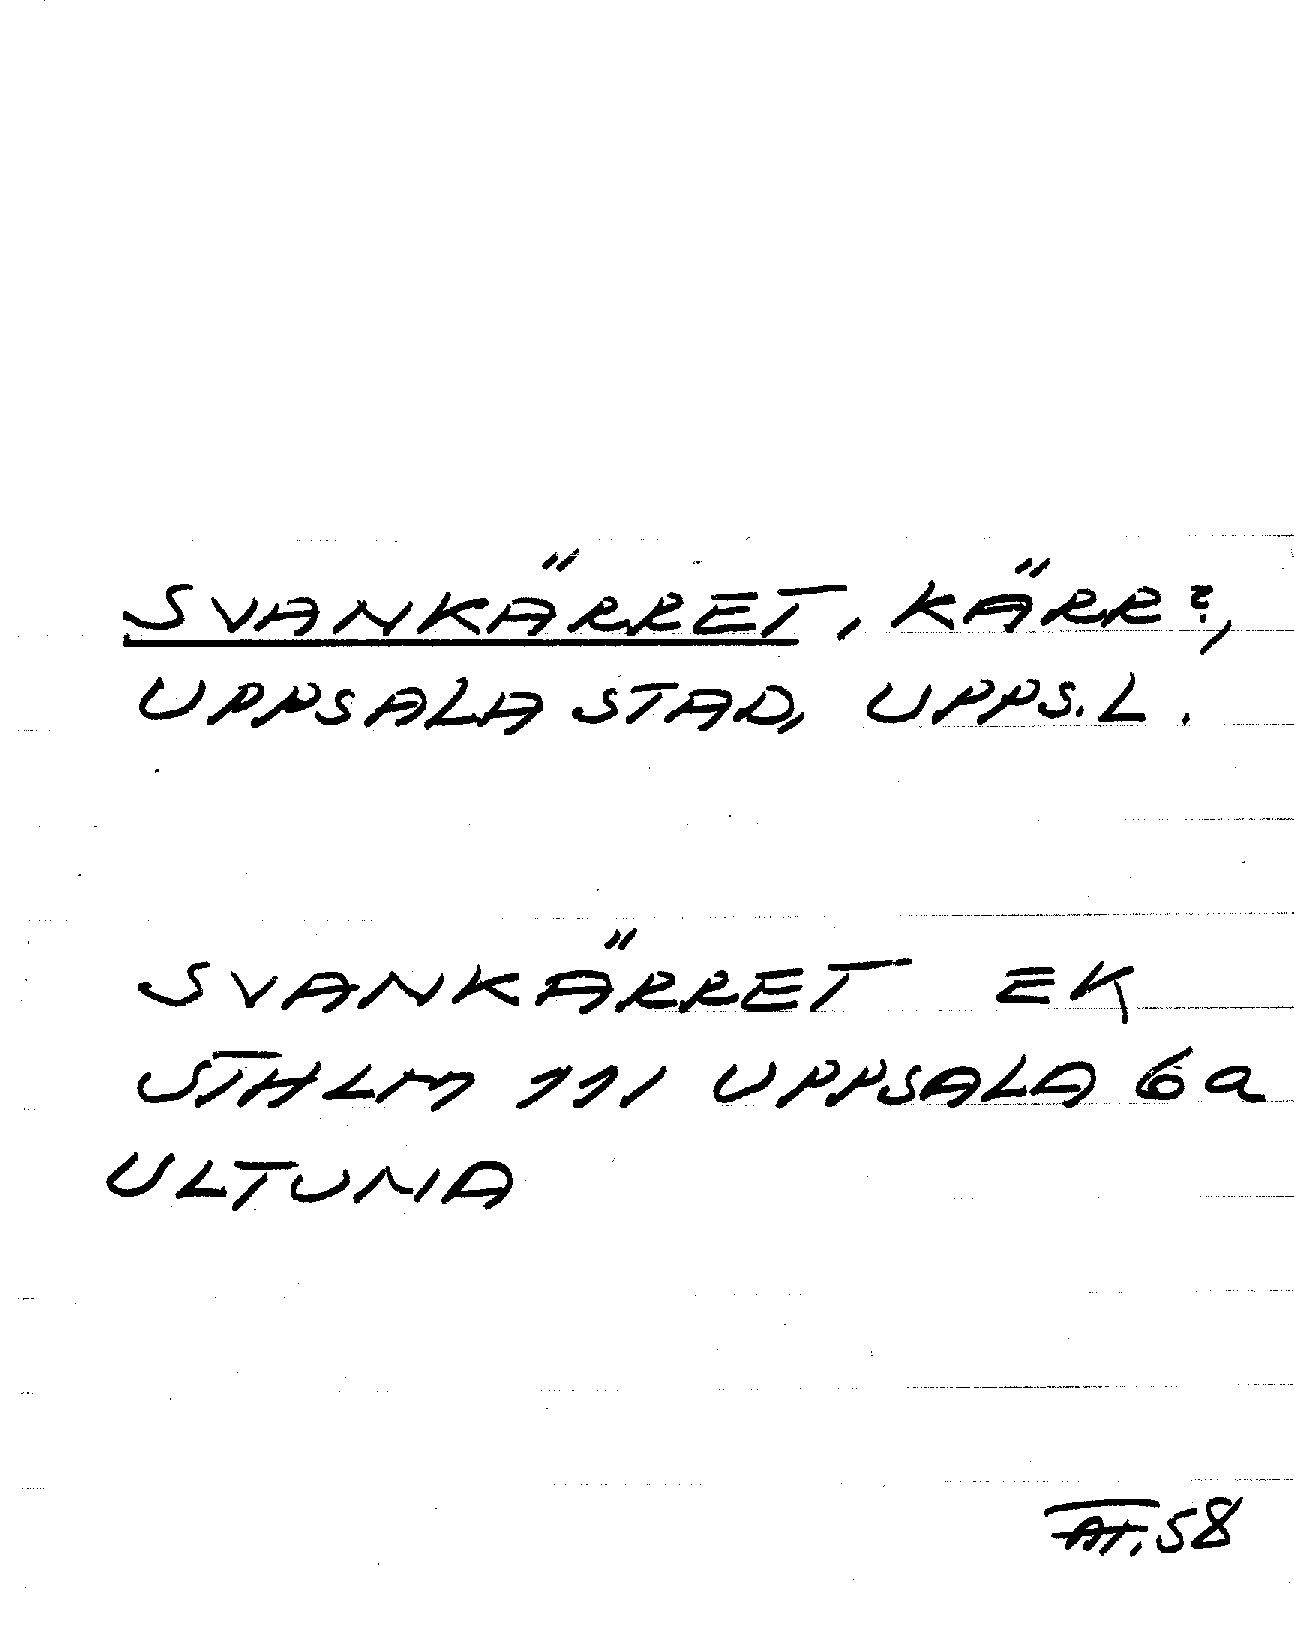 SVANKÄRRET, KÄRR?,
UPPSALA STAD, UPPS.L.
SVANKÄRRET EK
STHLM 111 UPPSALA 6a
ULTUNA
58